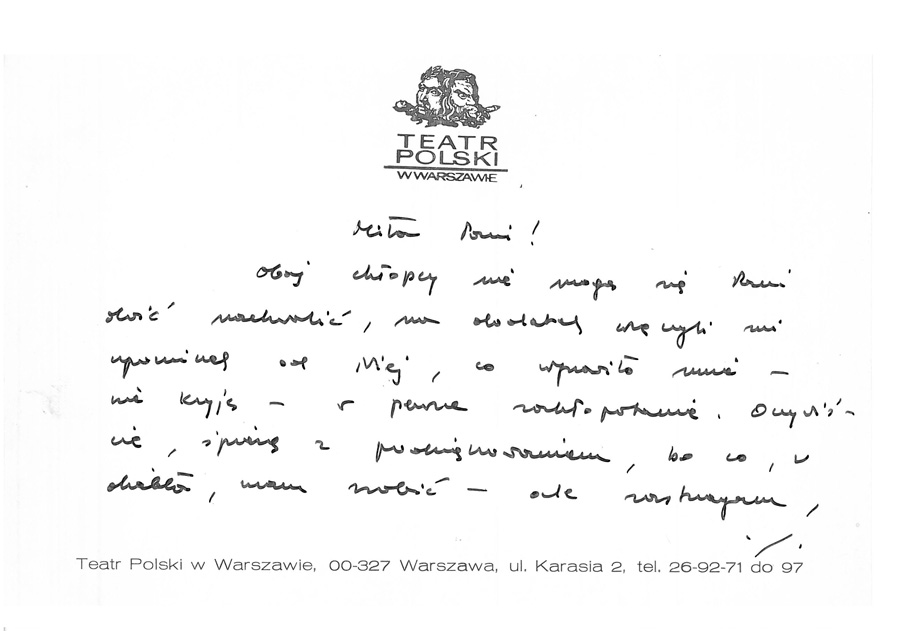 TEATR
POLSKI
W WARSZAWIE
Miła Pani!
Obaj chłopcy nie mogą się Pani
dość nachwalić, na dodatek wręczyli mi
upominek od Niej, co wprawiło mnie –
nie kryję – w pewne zakłopotanie. Oczywiś-
cie, śpieszę z podziękowaniem, bo co, u
diabła, mam zrobić – ale zastrzegam,
./.
Teatr Polski w Warszawie, 00-327 Warszawa, ul. Karasia 2, tel. 26-92-71 do 97